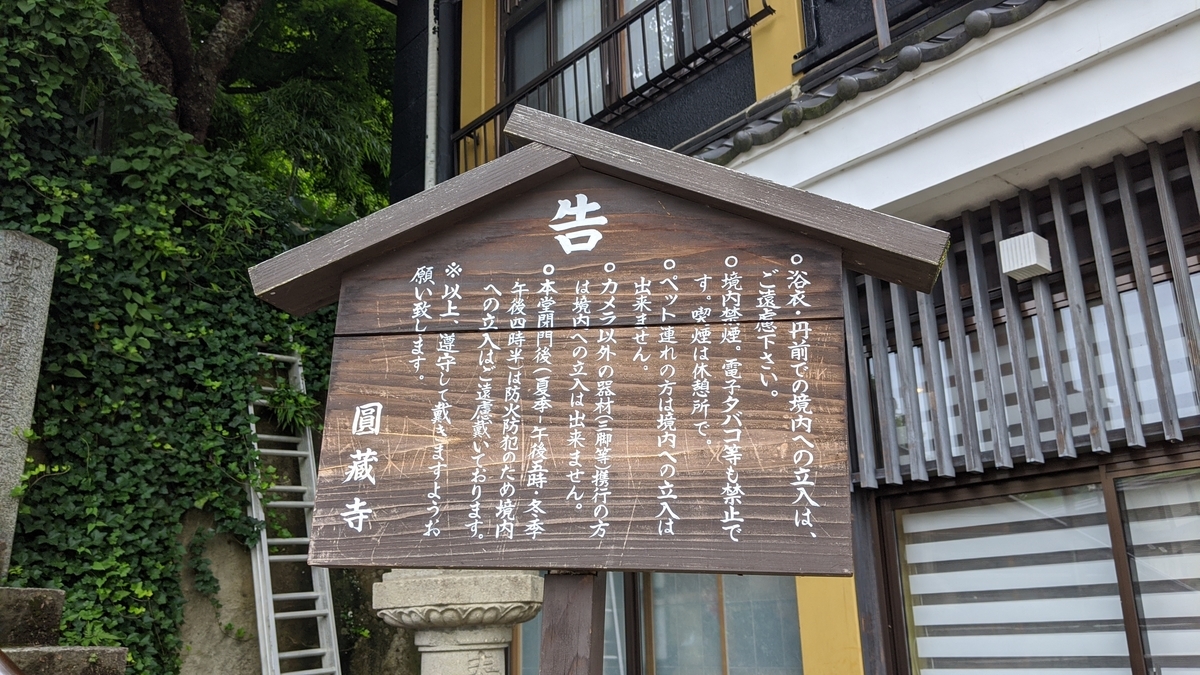 告
○浴衣・丹前での境内への立入は、
ご遠慮下さい。
○境内禁煙。電子タバコ等も禁止で
す。喫煙は休憩所で。
○ペット連れの方は境内への立入は
出来ません。
○カメラ以外の器材(三脚等)携行の方
は境内への立入は出来ません。
○本堂閉門後(夏季・午後五時・冬季
午後四時半)は防火防犯のため境内
への立入はご遠慮戴いております。
※以上、遵守して戴きますようお
願い致します。
圓藏寺